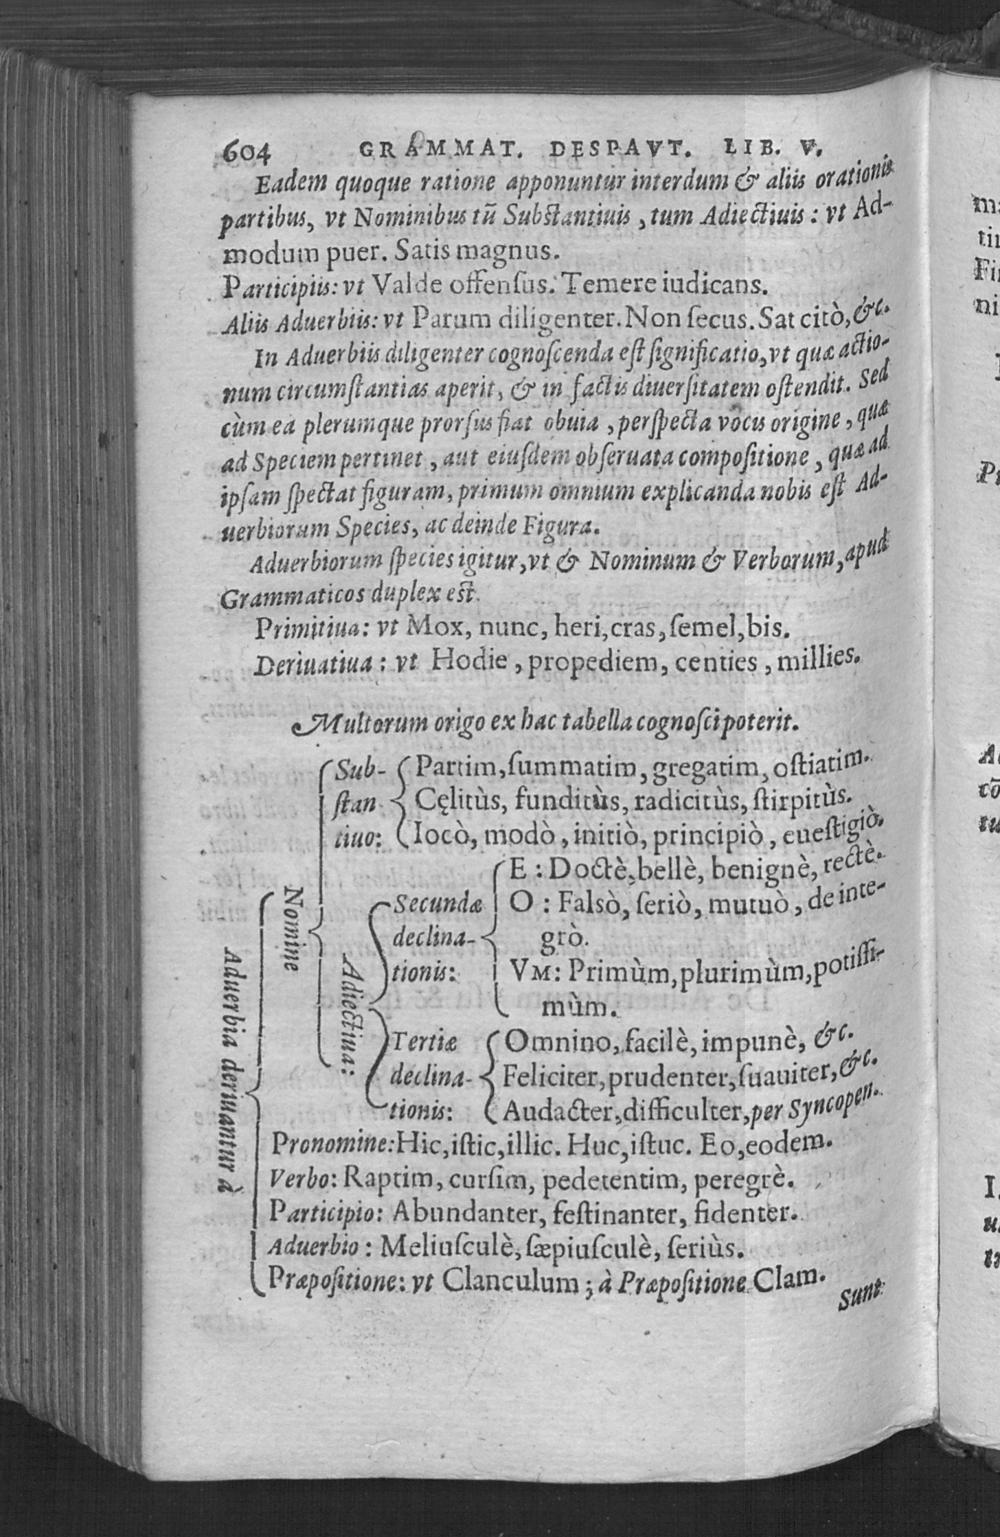 604 GRAMMAT. DESPAVT. LIB. V.
Eadem quoque ratione apponuntur interdum & aliis orationis
partibus, vt Nominibus tū Substantiuis, tum Adiectiuis: vt Ad-
modum puer. Satis magnus.
Participiis: vt Valde offenſus. Temere iudicans.
Aliis Aduerbiis: vt Parum diligenter. Non ſecus. Sat citò, &c.
In Aduerbiis diligenter cognoſcenda eſt ſignificatio, vt quæ actio-
num circumſtantias aperit, & in factis diuerſitatem oſtendit. Sed
cùm ea plerumque prorſus fiat obuia, perſpecta vocis origine, quæ
ad Speciem pertinet, aut eiuſdem obſeruata compoſitione, quæ ad
ipſam ſpectat figuram, primum omnium explicanda nobis eſt Ad-
uerbiorum Species, ac deinde Figura.
Aduerbiorum ſpecies igitur, vt & Nominum & Verborum, apud
Grammaticos duplex eſt.
Primitiua: vt Mox, nunc, heri, cras, ſemel, bis.
Deriuatiua: vt Hodie, propediem, centies, millies.
Multorum origo ex hac tabella cognoſci poterit.
Aduerbia deriuantur à
Nomine
Sub-
ſtan
tiuo:
Partim, ſummatim, gregatim, oſtiatim.
Cęlitùs, funditùs, radicitùs, ſtirpitùs.
Iocò, modò, initiò, principiò, eueſtigiò.
Adiectiua:
Secundæ
declina-
tionis:
E: Doctè, bellè, benignè, rectè.
O: Falsò, ſeriò, mutuò, de inte-
grò.
VM: Primùm, plurimùm, potiſſi-
mùm.
Tertiæ
declina-
tionis:
Omnino, facilè, impunè, &c.
Feliciter, prudenter, ſuauiter, &c.
Audacter, difficulter, per Syncopen.
Pronomine: Hic, iſtic, illic. Huc, iſtuc. Eo, eodem.
Verbo: Raptim, curſim, pedetentim, peregrè.
Participio: Abundanter, feſtinanter, fidenter.
Aduerbio: Meliuſculè, ſæpiuſculè, ſeriùs.
Præpoſitione: vt Clanculum; à Præpoſitione Clam.
Sunt